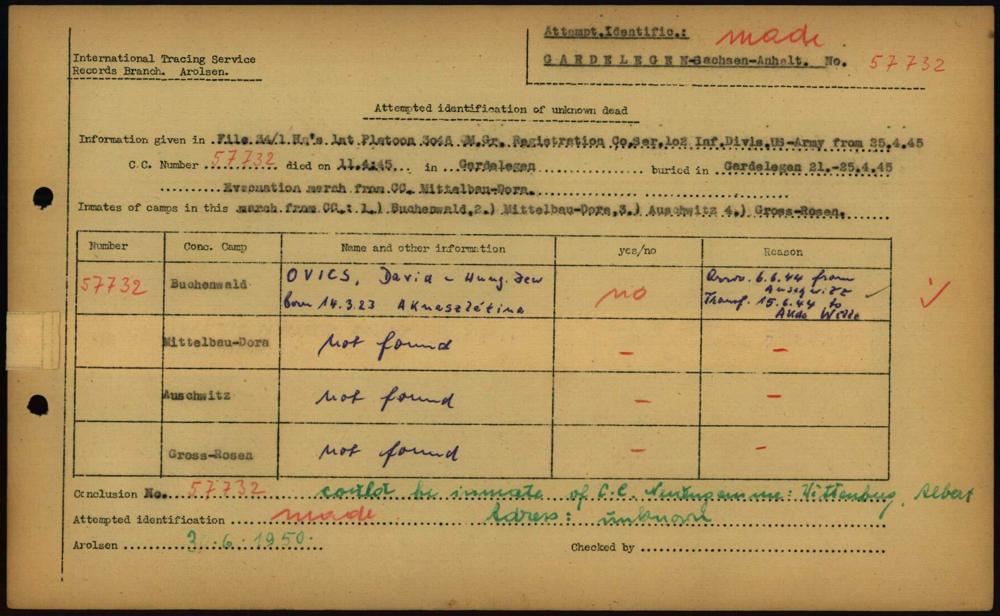 Attempt.Identific.: made
International Tracing Service
Records Branch. Arolsen.
GARDELEGEN-Sachsen-Anhalt. No. 57732
Attempted identification of unknown dead
Information given in File 34/1 Hq's 1st Platoon 3046 QM.Gr. Registration Co.Ser.102 Inf.Divis.US-Army from 25.4.45
C.C. Number 57732 died on 11.4.45 in Gardelegen buried in Gardelegen 21.-25.4.45
Evacuation march from CC. Mittelbau-Dora.
Inmates of camps in this march from CC.: 1.) Buchenwald,2.) Mittelbau-Dora,3.) Auschwitz 4.) Gross-Rosen.
Number Conc. Camp Name and other information yes/no Reason
57732 Buchenwald OVICS, David - Hung. Jew born 14.3.23 Aknaszlatina no Arrv. 6.6.44 from Auschwitz Transf. 15.6.44 to Akdo
Mittelbau-Dora not found - -
Auschwitz not found - -
Gross-Rosen not found - -
Conclusion No. 57732 could be inmate of C.C. Neuengamme: Vittenburg, Albert
Attempted identification made Adress: unknown
Arolsen .6.1950.
Checked by